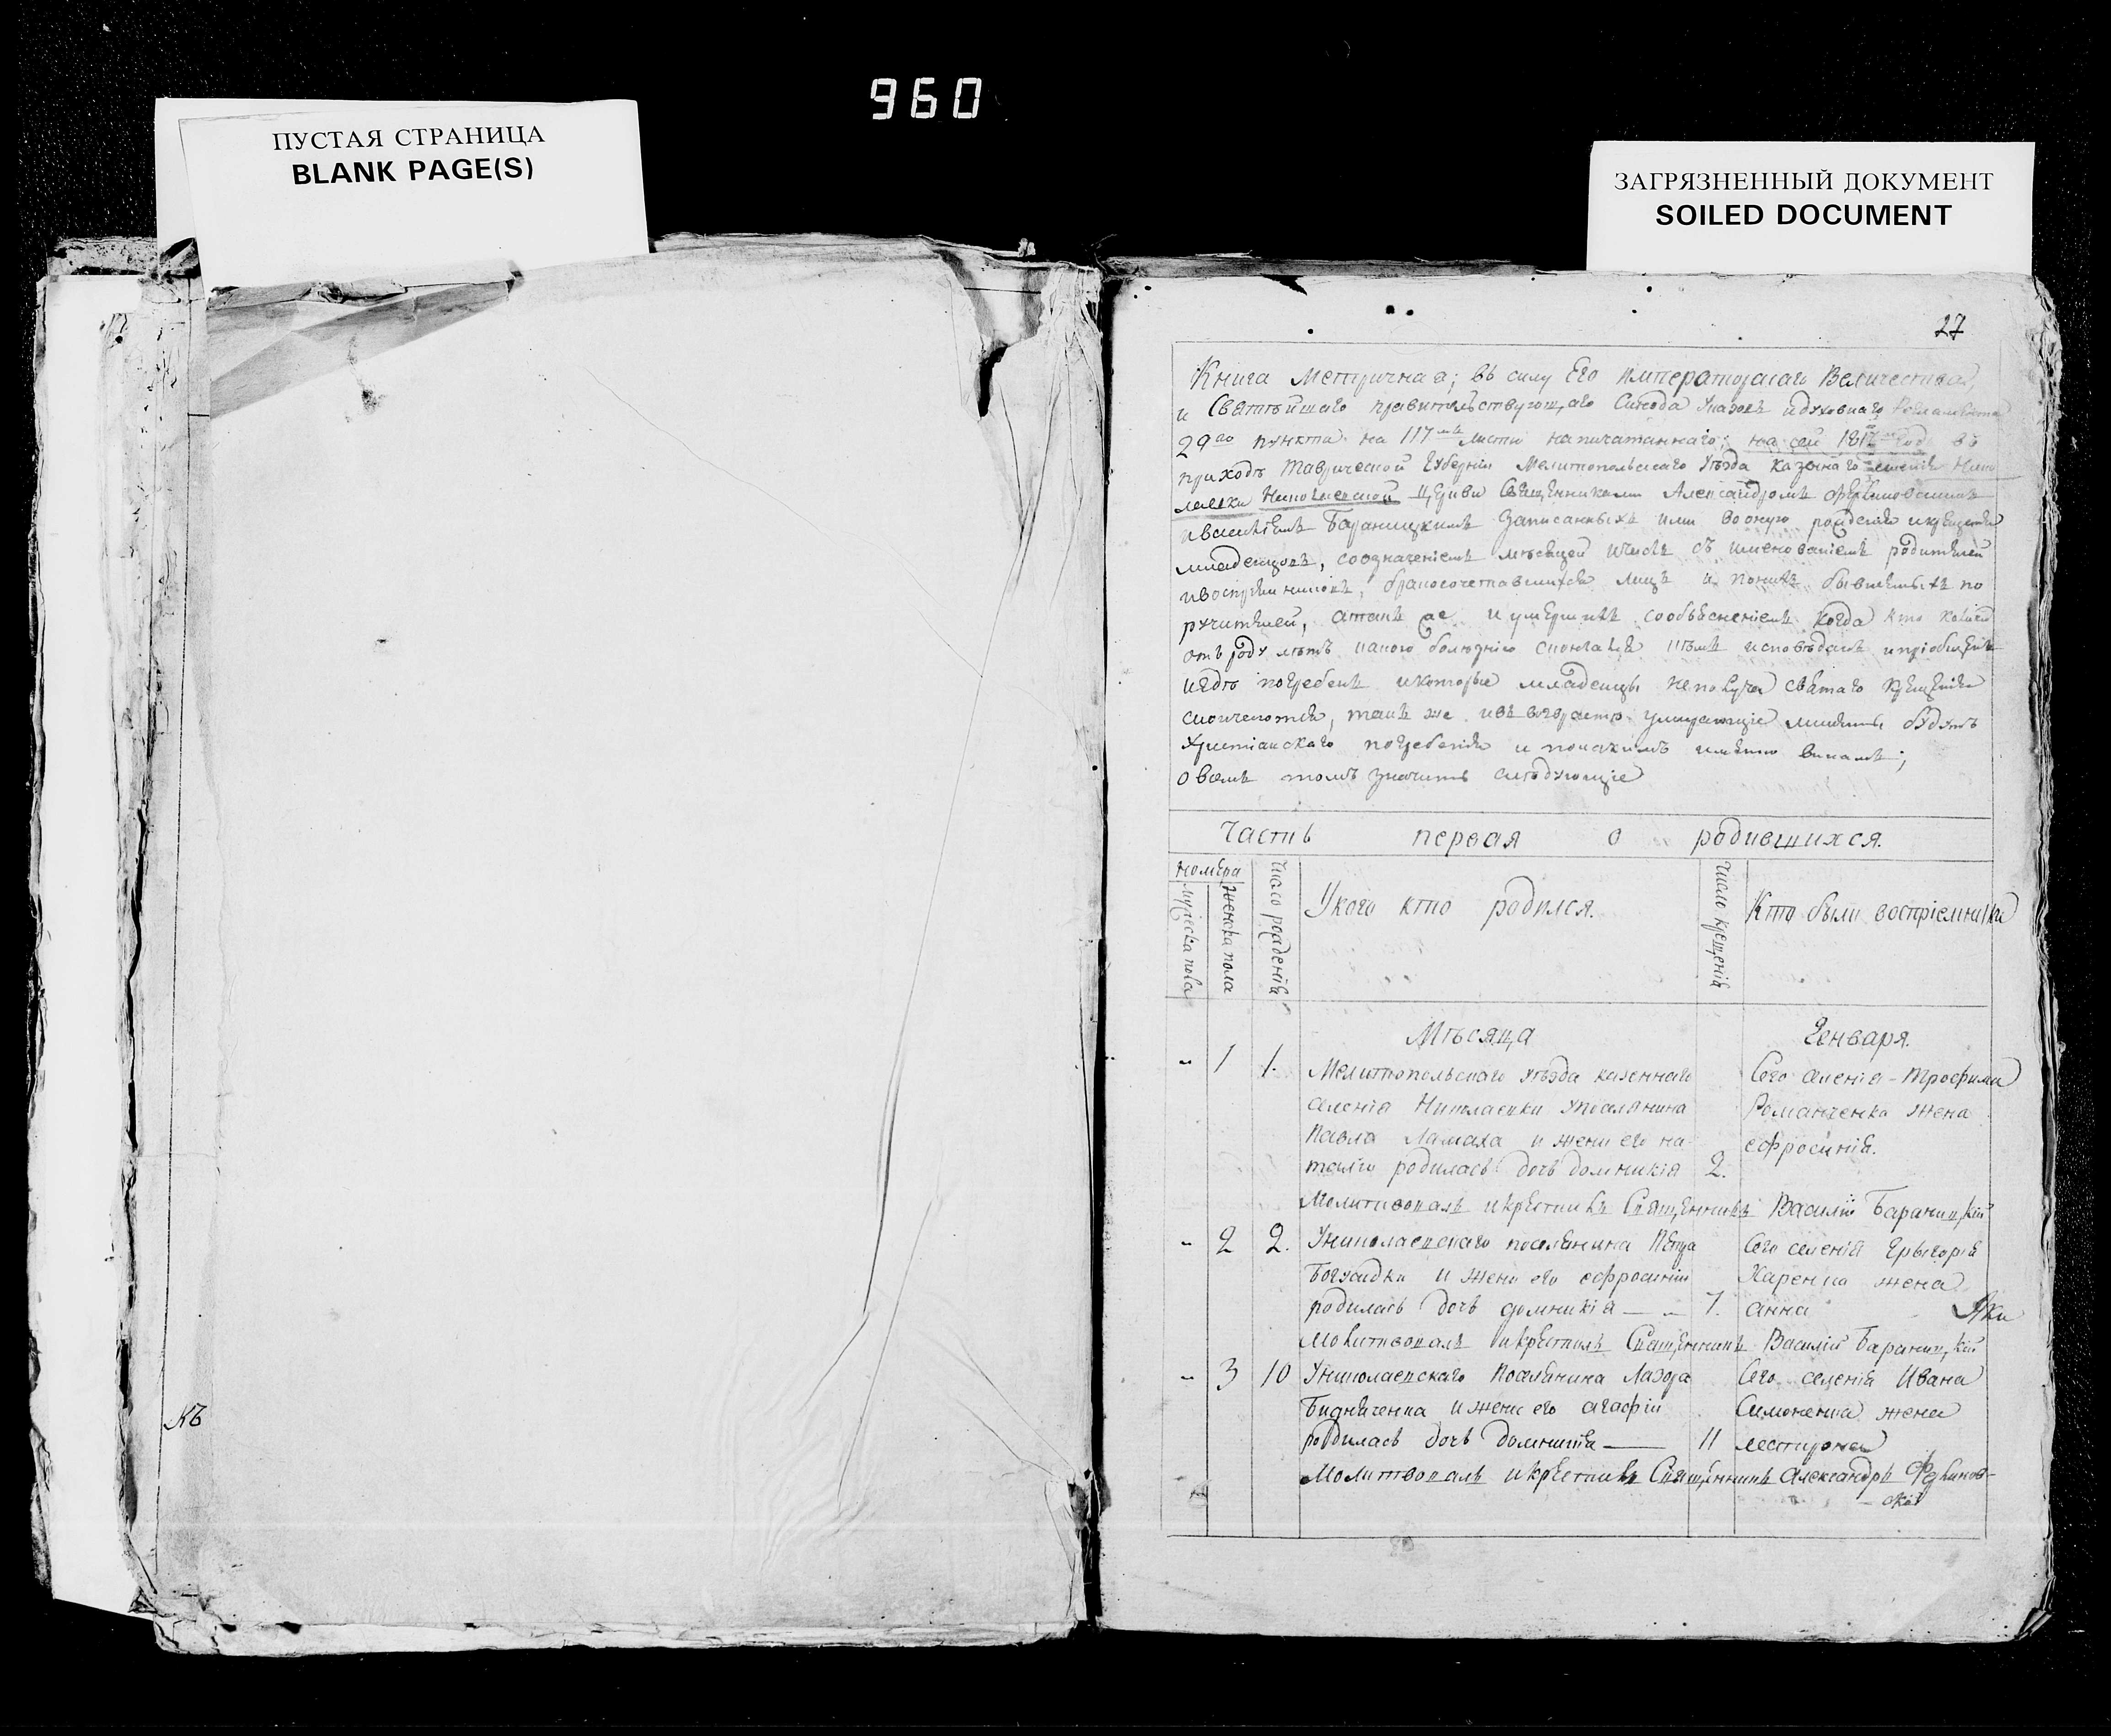 960
ПУСТАЯ СТРАНИЦА
BLANK PAGE(S)
ЗАГРЯЗНЕННЫЙ ДОКУМЕНТ
SOILED DOCUMENT
27
Книга Метричная; въ силу Его императорскаго Величества,
и Святѣйшаго правительствующаго Синода Указовъ идуховнаго Регламента
29го пункта на 117мъ листѣ напичатаннаго; на сей год въ
приходѣ Таврической Губерніи Мелитопольскаго Уѣзда казеннаго селенія Нико
лаевки Николаевской Церкви Священниками Александромъ
ивасиліемъ Бараницкимъ Записанныхъ или вооную рожденія икрещенія
младенцовъ, соозначеніемъ мѣсяцей ичислъ съ именованіемъ родителей
ивоспріемниковъ, бракосочетавшихся лицъ и поихъ бывшихъ по
ручителей, атакъ же иумершихъ сообъясненіемъ когда кто
отъ роду лѣтъ какою болѣзнію скончался исповѣданъ ипріобщенъ
игдѣ погребенъ икоторые младенцы неполуча святаго крещенія
скончаются, такъ же ивъ возрастѣ умирающіе лишены будутъ
Христіанскаго погребенія и покакимъ имянно винамъ;
овсемъ томъ значитъ слѣдующіе
Часть первая о родившихся.
Номѣра
мужеска пола
женска пола
Число рожденія
Укого кто родился.
Число крещенія
Кто были воспріемники
Мѣсяца Генваря.
1 1. Мелитопольскаго уѣзда казеннаго Сего селенія Трофима
селенія Николаевки упоселянина Романченка жена
Павла Ламаха и жены его на ефросинія.
таліи родилась дочь домникія 2.
Молитвовалъ икрестилъ Священникъ Василій Бараницкій
2 2. Униколаевскаго поселянина Петра Сего селенія Григорія
и жены его ефросиніи Харенка жена
родилась дочь домникія 7. анна
Молитвовалъ икрестилъ Священникъ Василій Бараницкій
3 10 Униколаевскаго Поселянина Лазоря Сего селенія Ивана
и жены его агафіи Симоненка жена
родилась дочь домникія 11
Молитвовалъ икрестилъ Священникъ Александръ
скій
къ